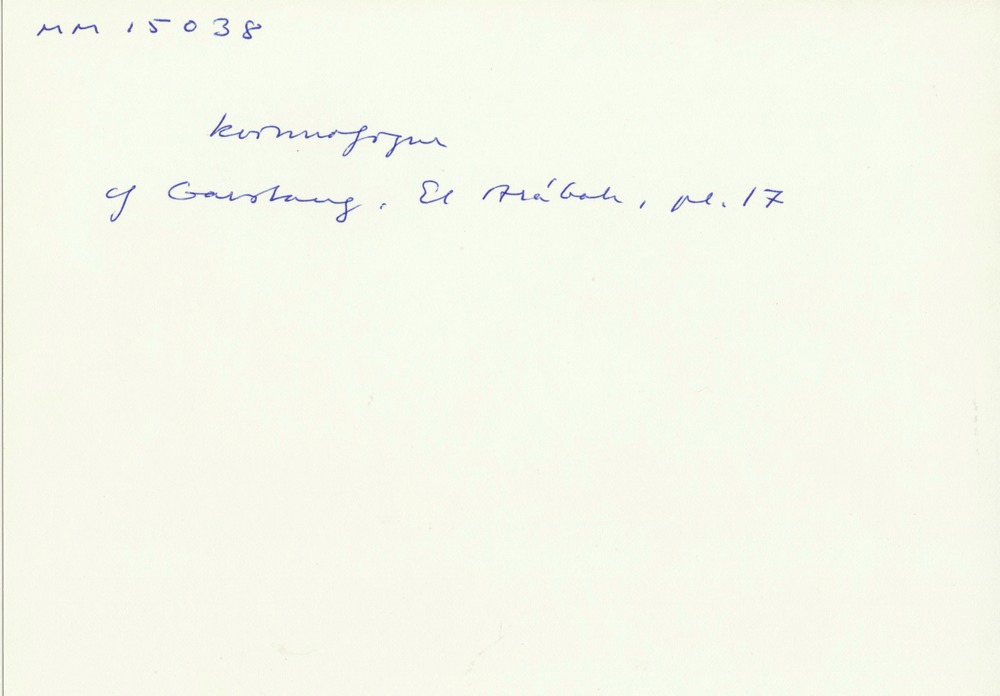 MM 15038
kvinnofigur
cf Garstang, El Arábah, pl. 17